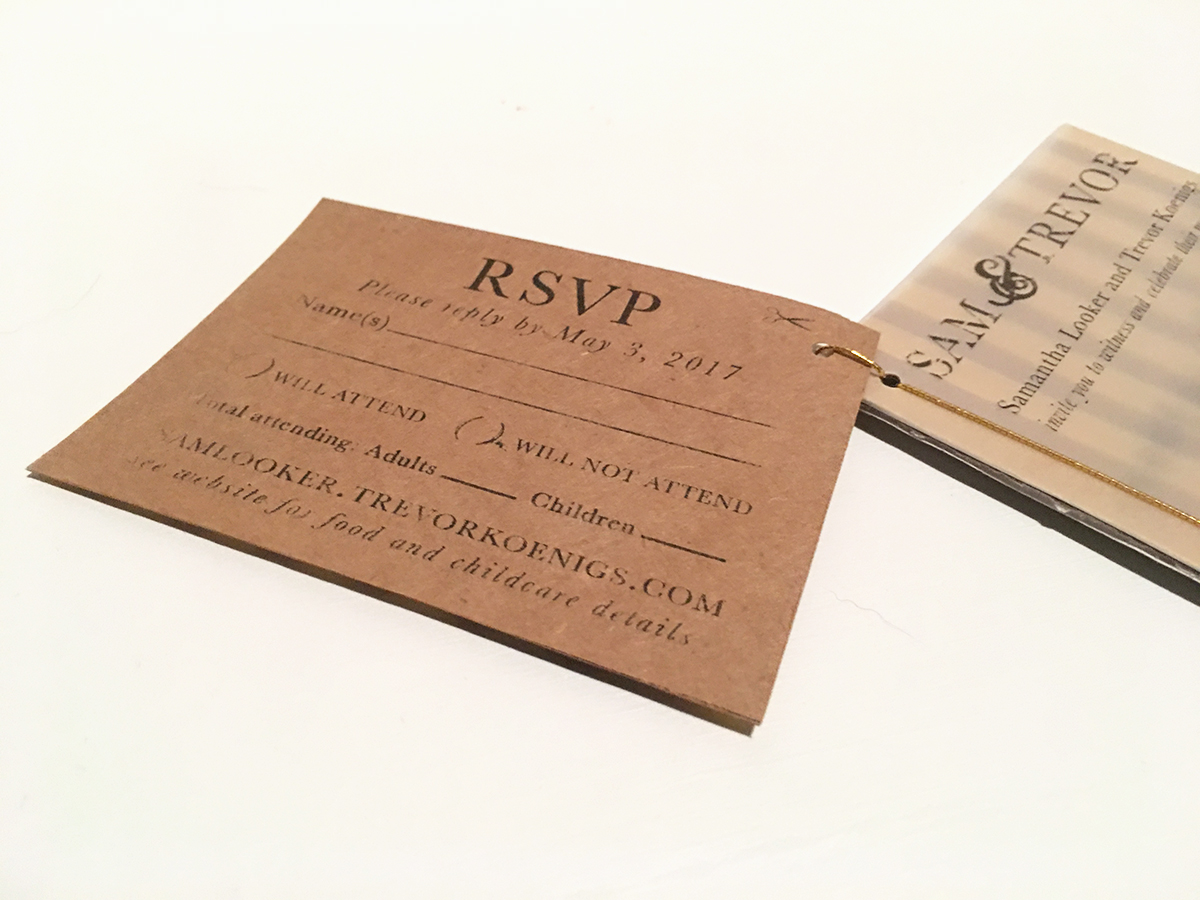 RSVP
Please reply by May 3, 2017
Name(s)
( ) WILL ATTEND ( ) WILL NOT ATTEND
Total attending: Adults Children
SAMLOOKER.TREVORKOENIGS.COM
see website for food and childcare details.
SAM & TREVOR
Samantha Looker and Trevor Koenigs
invite you to witness and celebrate their